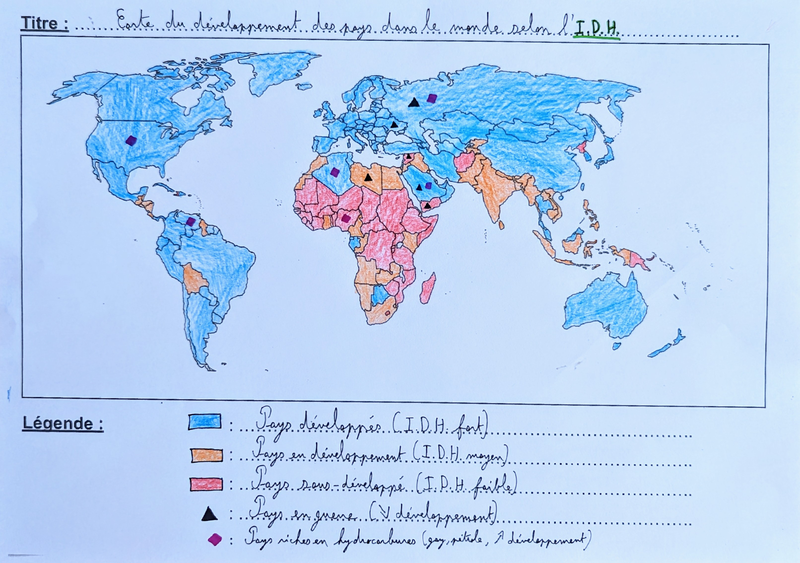 Titre : Carte du développement des pays dans le monde selon l'I.D.H.
Légende :
: Pays développés (I.D.H. fort)
: Pays en développement (I.D.H. moyen)
: Pays sous-développé (I.D.H. faible)
: Pays en guerre (↘ développement)
: Pays riches en hydrocarbures (gaz, pétrole, ↗ développement)